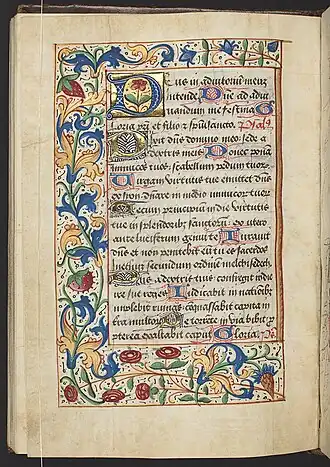 Deus in adiutorium meum
intende Dne ad adiu
uandum me festina G
loria pri et filio et spui sancto Psal
Dixit dns domino meo sede a
dextris meis Donec ponam
inimicos tuos scabellum pedum tuorum
Virgam virtutis tue emittet dns
ex syon dnare in medio inimicor tuor
Tecum principium in die virtutis
tue in splendorib sanctorum ex utero
ante luciferum genui te Iurauit
dns et non penitebit eum tu es sacerdos
in eternum secundum ordine melchisedech
Dns a dextris tuis confregit in die
ire sue reges Iudicabit in nationib
implebit ruinas conquassabit capita in
tra multorum De torrente in via bibit p
pterea exaltabit caput Gloria Ps